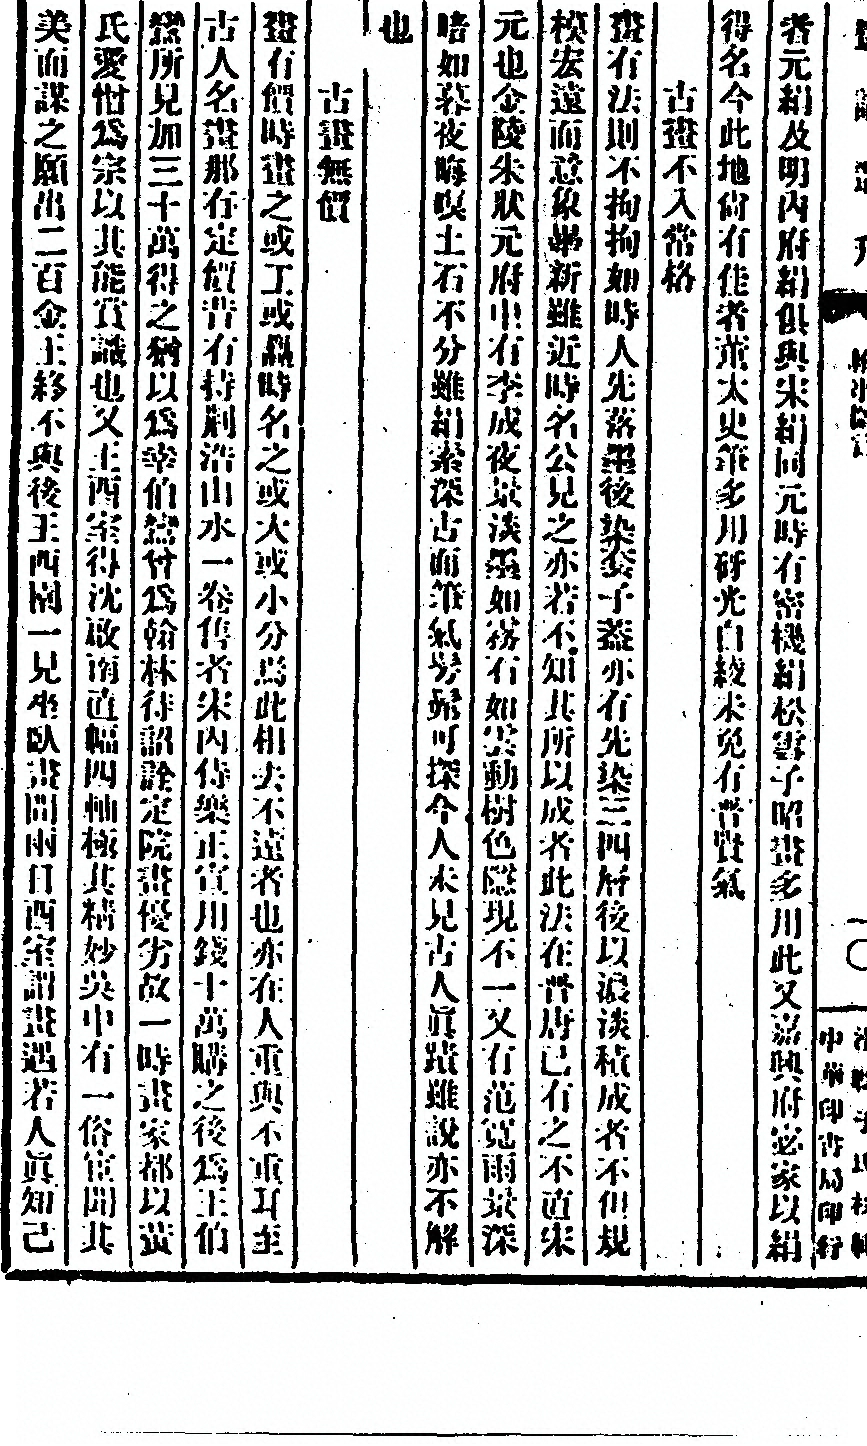 者元絹及明內府絹俱與宋絹同元時有密機絹松雪子昭畫多用此又嘉興府宓家以絹
得名今此地尙有佳者董太史筆多用砑光白綾未免有晉賢氣
古畫不入常格
畫有法則不拘拘如時人先落墨後染套子蓋亦有先染三四層後以濃淡積成者不但規
模宏遠而意象畢新雖近時名公見之亦若不知其所以成者此法在晉唐已有之不直宋
元也金陵朱狀元府中有李成夜景淡墨如霧石如雲動樹色隱現不一又有范寬雨景深
暗如暮夜晦暝土石不分雖絹素深古而筆氣勢歸可探今人未見古人眞蹟雖說亦不解
也
古畫無價
畫有價時畫之或工或粗時名之或大或小分焉此相去不遠者也亦在人重與不重耳至
古人名畫那有定價昔有持荊浩山水一卷售者宋內侍樂正宣用錢十萬購之後爲王伯
鸞所見加三十萬得之猶以爲幸伯鸞曾爲翰林待詔詮定院畫優劣故一時畫家都以黃
氏愛憎爲宗以其能賞識也又王酉室得沈啟南直幅四軸極其精妙吳中有一俗宦聞其
美而謀之願出二百金王終不與後王西園一見坐臥畫間兩日酉室謂畫遇若人眞知己
中華印書局印行